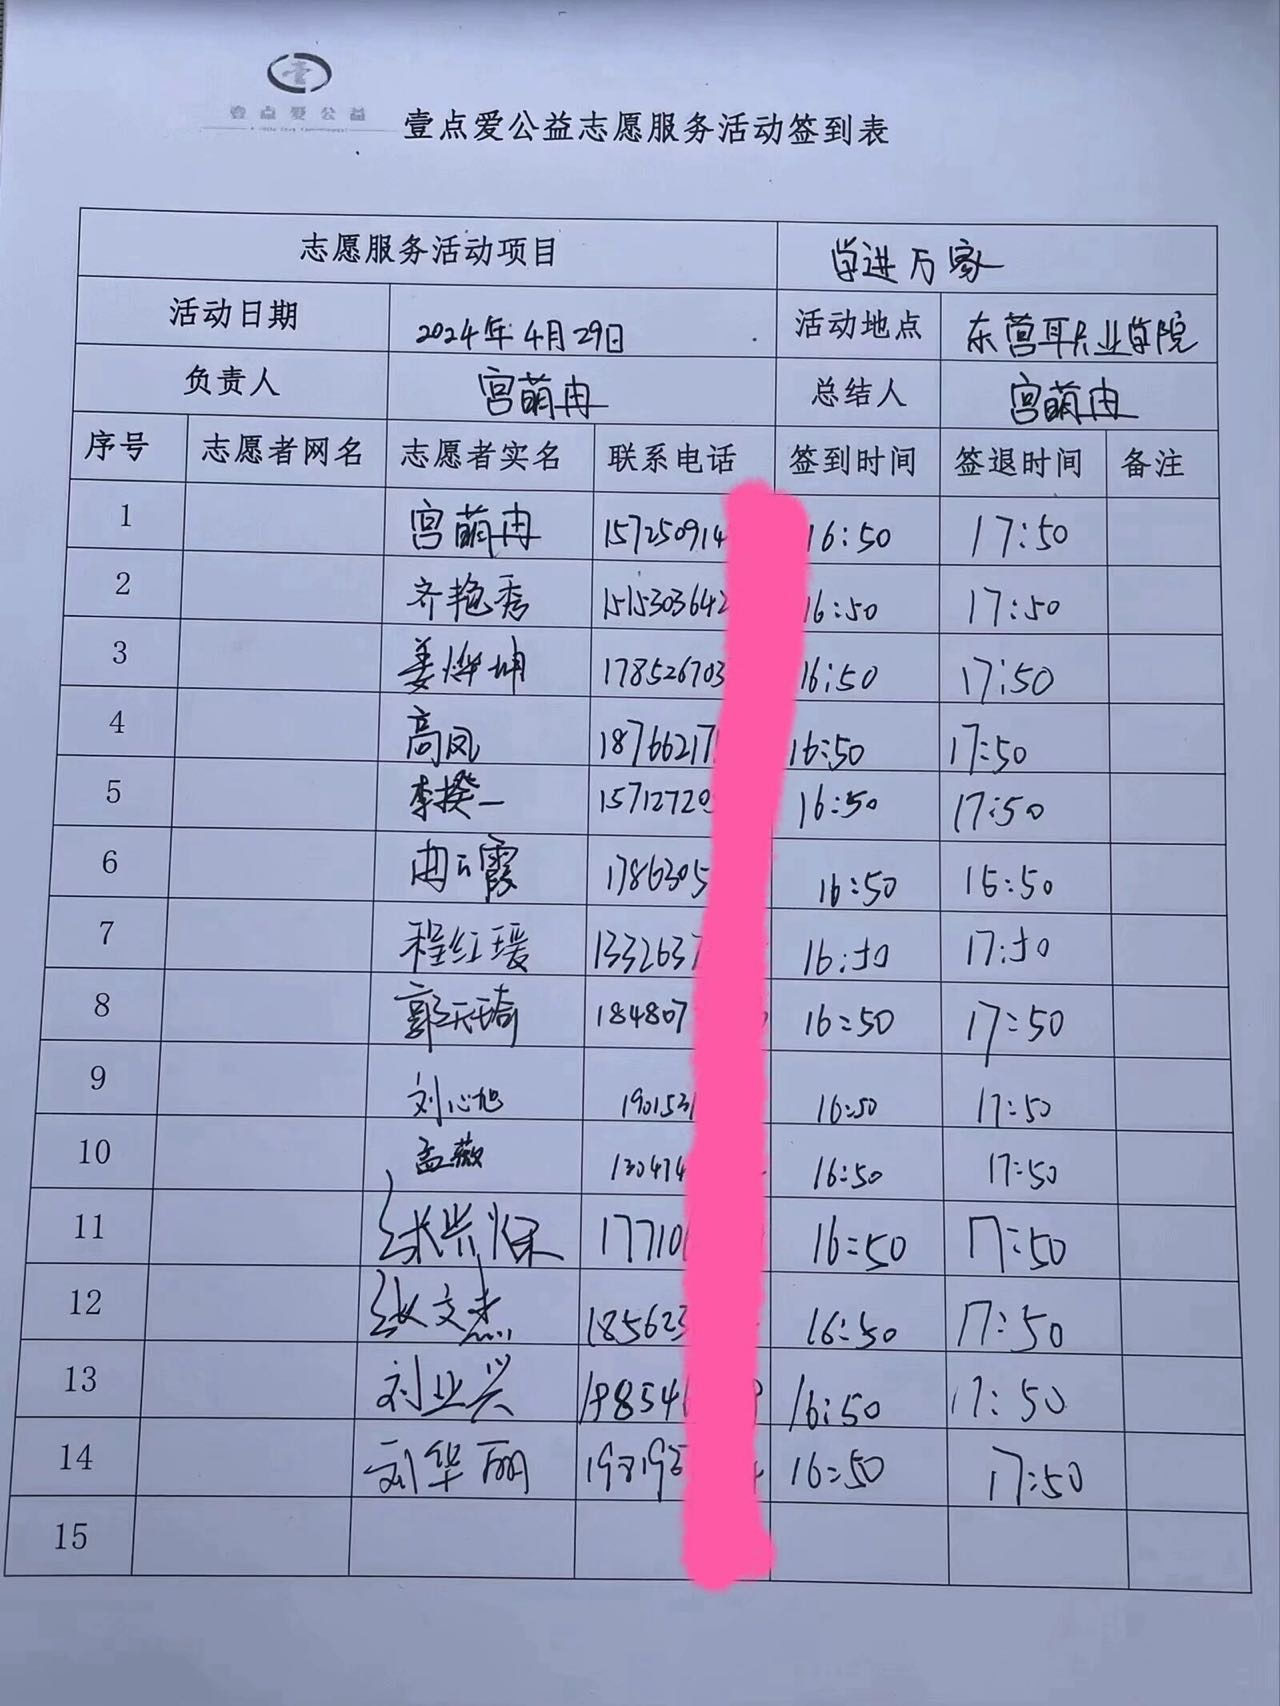 壹点爱公益
壹点爱公益志愿服务活动签到表
志愿服务活动项目 学进万家
活动日期 2024年4月29日 活动地点 东营职业学院
负责人 宫萌冉 总结人 宫萌冉
序号 志愿者网名 志愿者实名 联系电话 签到时间 签退时间 备注
1 宫萌冉 157250914 16:50 17:50
2 齐艳秀 151530364 16:50 17:50
3 姜烨坤 178526703 16:50 17:50
4 高凤 18766217 16:50 17:50
5 李揆一 15712720 16:50 17:50
6 冉云霞 1786305 16:50 16:50
7 程红瑗 133263 16:50 17:50
8 郭天琦 184807 16:50 17:50
9 刘心旭 190153 16:50 17:50
10 孟薇 130474 16:50 17:50
11 张兴保 17710 16:50 17:50
12 张文杰 185623 16:50 17:50
13 刘业兴 19854 16:50 17:50
14 刘华丽 19819 16:50 17:50
15